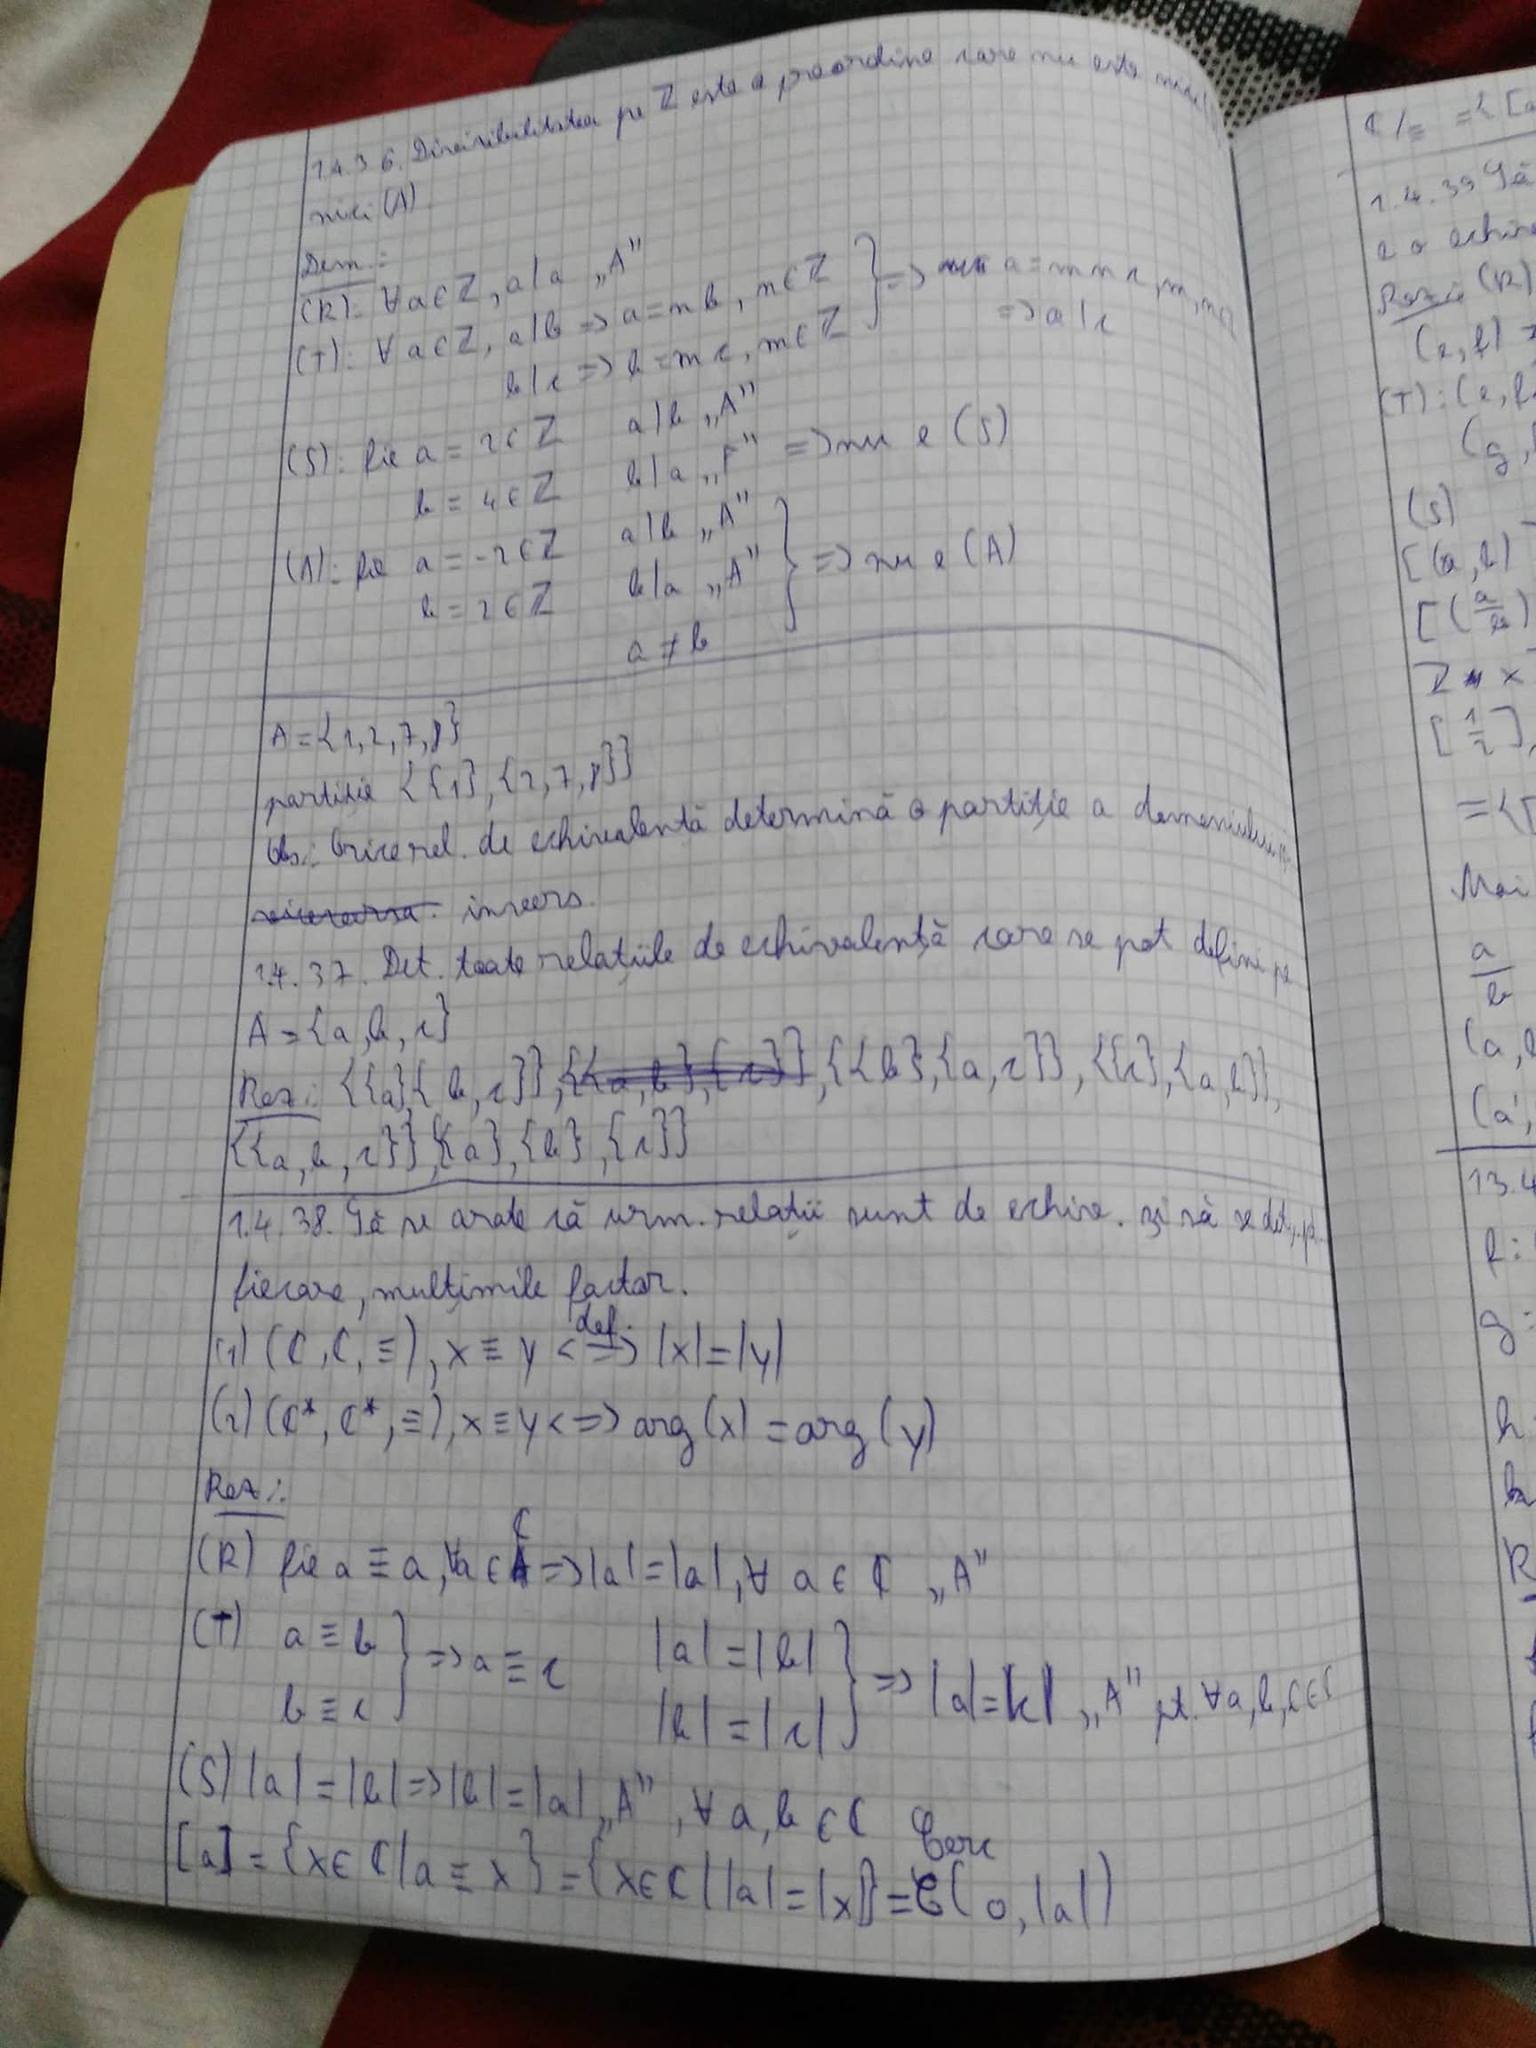 1.4.36. Divizibilitatea pe ℤ este o preordine care nu este nici
nici (A)
Dem.:
(R): ∀a∈ℤ, a|a „A"
(T): ∀a∈ℤ, a|b => a=nb, n∈ℤ } => a=mnc, m,n∈
b|c => b=mc, m∈ℤ => a|c
(S): fie a = 2∈ℤ a|b „A"
b = 4∈ℤ b|a „F" => nu e (S)
(A): fie a = -2∈ℤ a|b „A"
b = 2∈ℤ b|a „A" } => nu e (A)
a≠b
A={1,2,7,8}
partiție {{1},{2,7,8}}
Obs.: Orice rel. de echivalență determină o partiție a domeniului
invers.
1.4.37. Det. toate relațiile de echivalență care se pot defini pe
A={a,b,c}
Rez.: {{a}{b,c}}, {{a,b},{c}}, {{b},{a,c}}, {{c},{a,b}},
{{a,b,c}},{{a},{b},{c}}
1.4.38. Să se arate că urm. relații sunt de echiv. și să se det., pt.
fiecare, mulțimile factor.
(1) (ℂ,ℂ,≡), x≡y <=def.=> |x|=|y|
(2) (ℂ*,ℂ*,≡), x≡y <=> arg(x)=arg(y)
Rez.:
(R) fie a≡a, ∀a∈ℂ => |a|=|a|, ∀ a∈ℂ „A"
(T) a≡b } => a≡c |a|=|b| } => |a|=|c| „A" pt. ∀a,b,c∈ℂ
b≡c |b|=|c|
(S) |a|=|b| => |b|=|a| „A", ∀ a,b∈ℂ
[a]={x∈ℂ|a≡x}={x∈ℂ||a|=|x|}=C(0,|a|) Cerc
ℂ/≡ ={[a
1.4.39 Să
e o echiv
(R)
(T):
(S)
[(a,b)
[(a/b)
[1/2]
Mai
a/b
(a,b
(a',
13.4
f:
g=
h
R